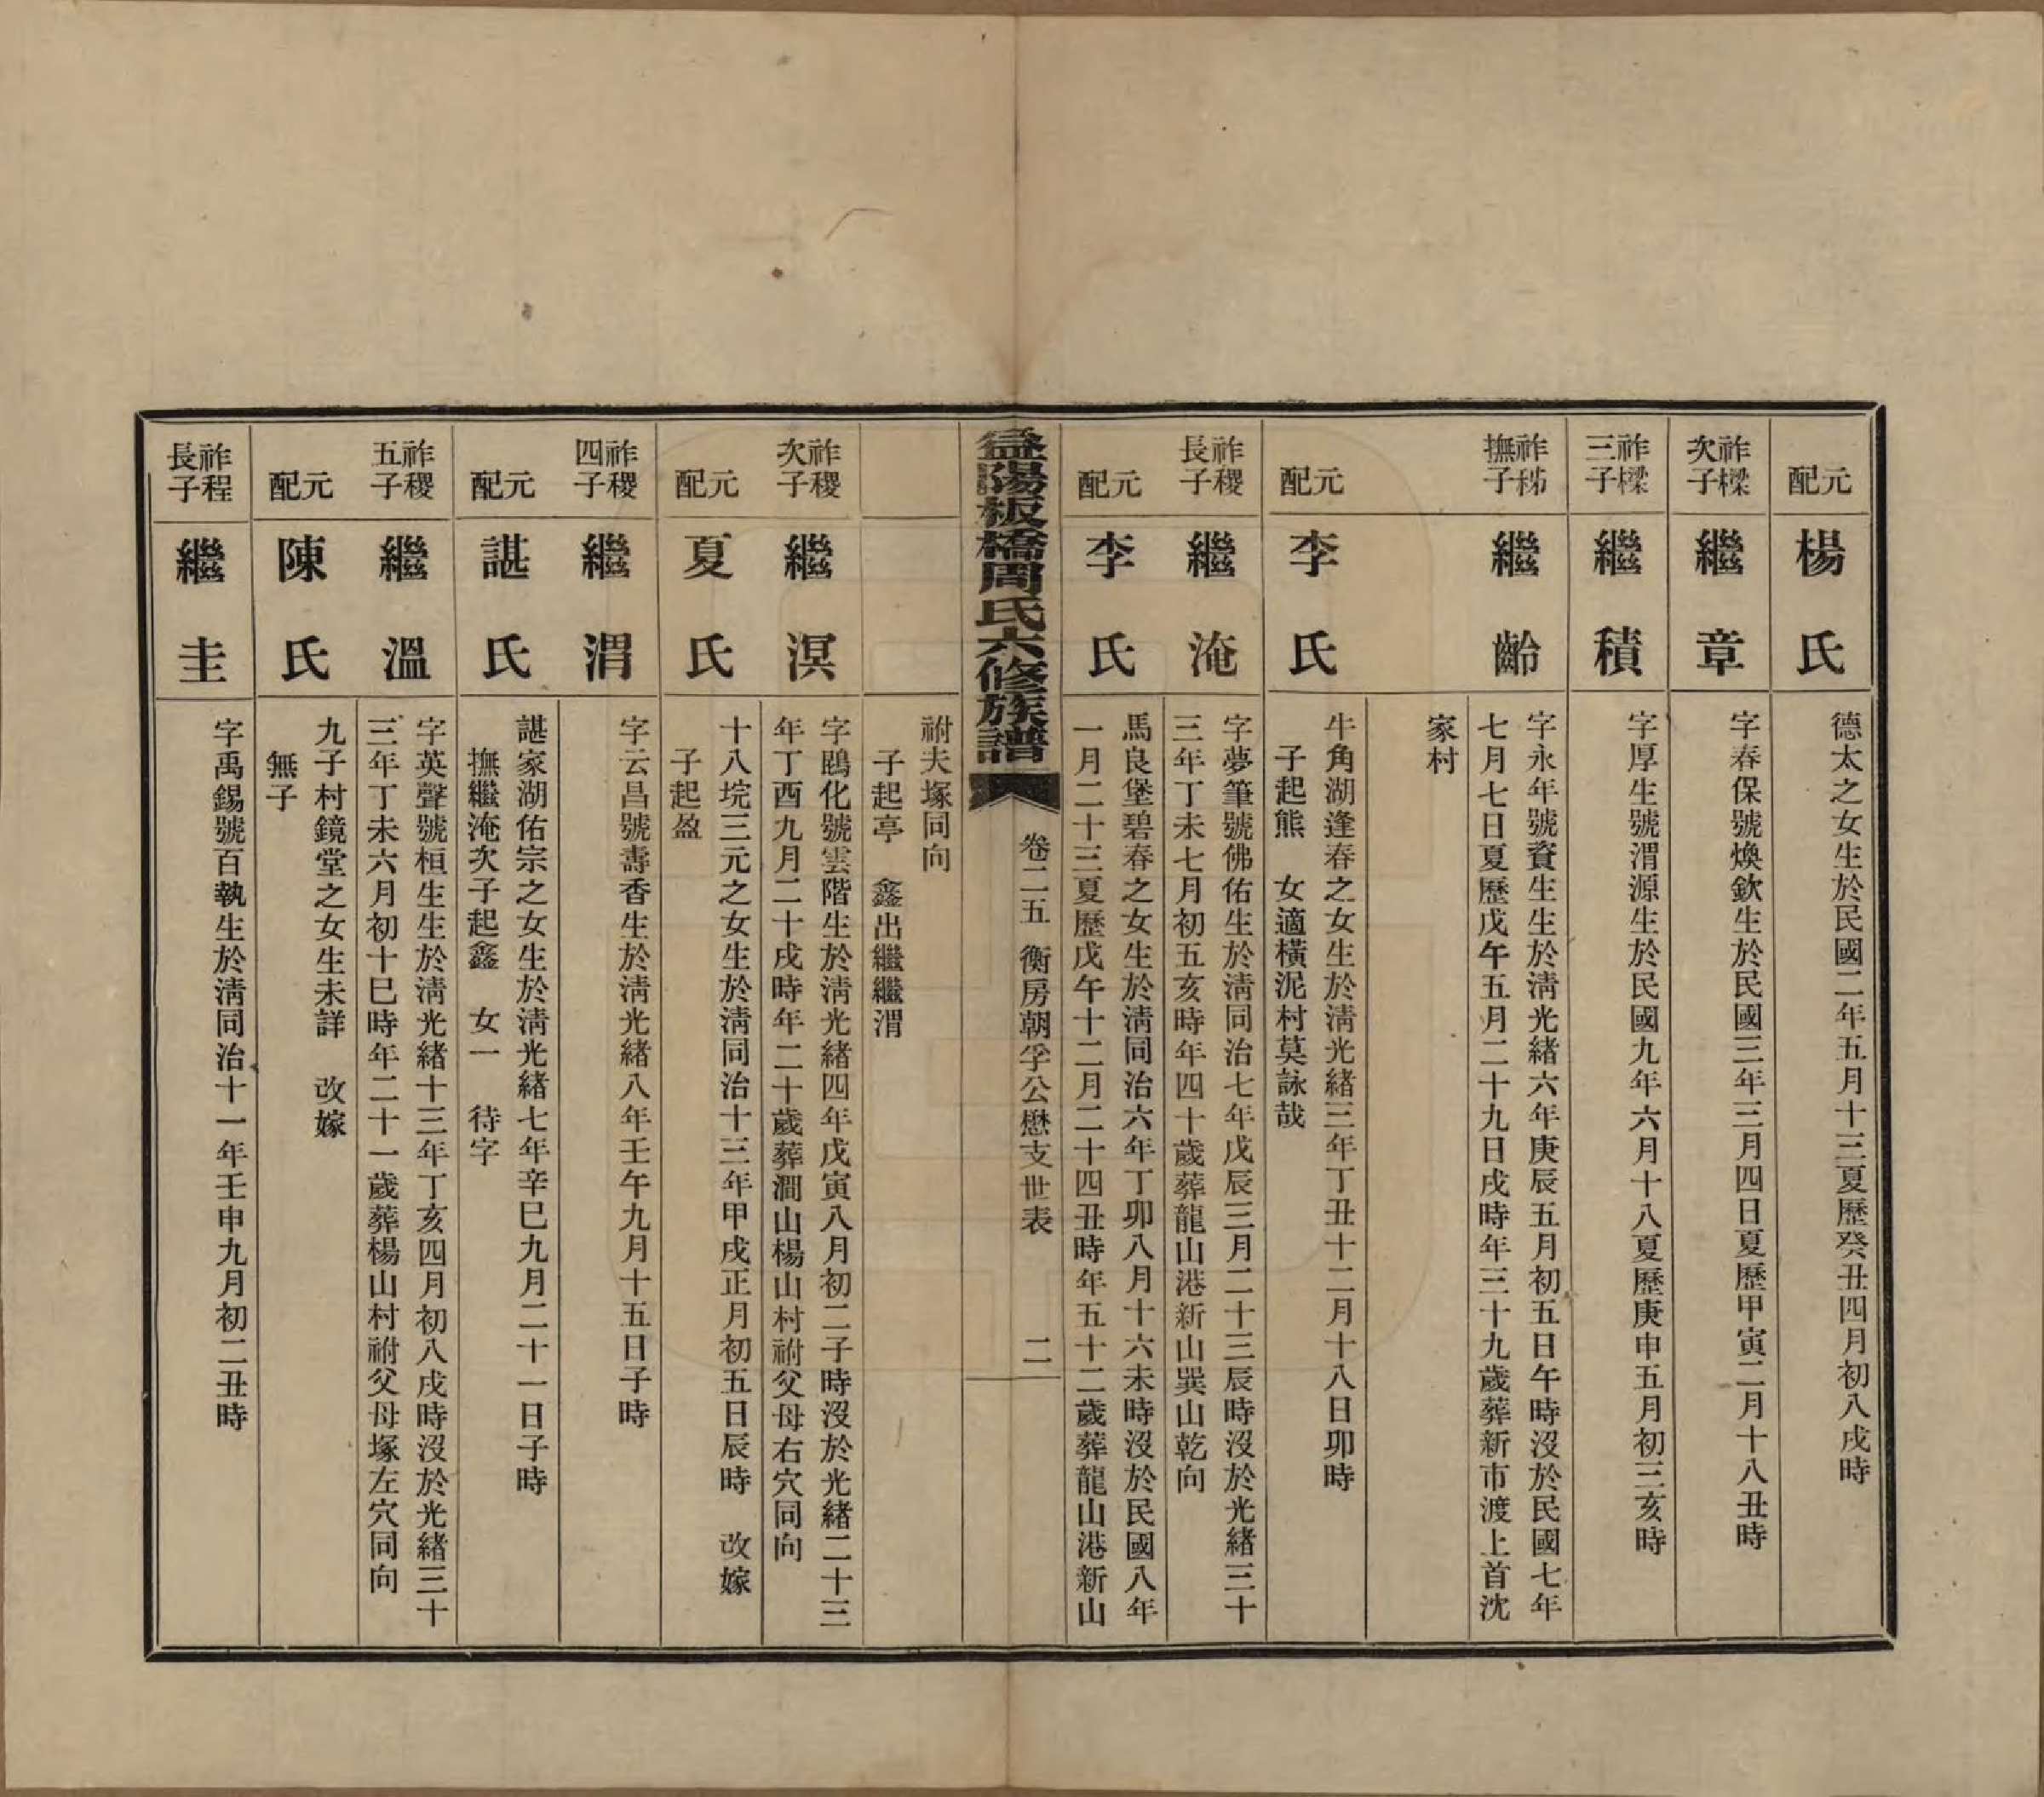 元配
楊氏
德太之女生於民國二年五月十三夏歷癸丑四月初八戌時
祚樑次子
繼章
字春保號煥欽生於民國三年三月四日夏歷甲寅二月十八丑時
祚樑三子
繼積
字厚生號渭源生於民國九年六月十八夏歷庚申五月初三亥時
祚秭撫子
繼齡
字永年號資生生於淸光緒六年庚辰五月初五日午時沒於民國七年
七月七日夏歷戊午五月二十九日戌時年三十九歲葬新市渡上首沈
家村
元配
李氏
牛角湖逢春之女生於淸光緒三年丁丑十二月十八日卯時
子起熊　女適橫泥村莫詠哉
祚稷長子
繼淹
字夢筆號佛佑生於淸同治七年戊辰三月二十三辰時沒於光緒三十
三年丁未七月初五亥時年四十歲葬龍山港新山巽山乾向
元配
李氏
馬良堡碧春之女生於淸同治六年丁卯八月十六未時沒於民國八年
一月二十三夏歷戊午十二月二十四丑時年五十二歲葬龍山港新山
益陽板橋周氏六修族譜
卷二五　衡房朝孚公懋支世表
二
祔夫塚同向
子起亭　鑫出繼繼渭
祚稷次子
繼溟
字鵾化號雲階生於淸光緒四年戊寅八月初二子時沒於光緒二十三
年丁酉九月二十戌時年二十歲葬澗山楊山村祔父母右穴同向
元配
夏氏
十八垸三元之女生於淸同治十三年甲戌正月初五日辰時　改嫁
子起盈
祚稷四子
繼渭
字云昌號壽香生於淸光緒八年壬午九月十五日子時
元配
諶氏
諶家湖佑宗之女生於淸光緒七年辛巳九月二十一日子時
撫繼淹次子起鑫　女一　待字
祚稷五子
繼溫
字英聲號桓生生於淸光緒十三年丁亥四月初八戌時沒於光緒三十
三年丁未六月初十巳時年二十一歲葬楊山村祔父母塚左穴同向
元配
陳氏
九子村鏡堂之女生未詳　改嫁
無子
祚程長子
繼圭
字禹錫號百執生於淸同治十一年壬申九月初二丑時